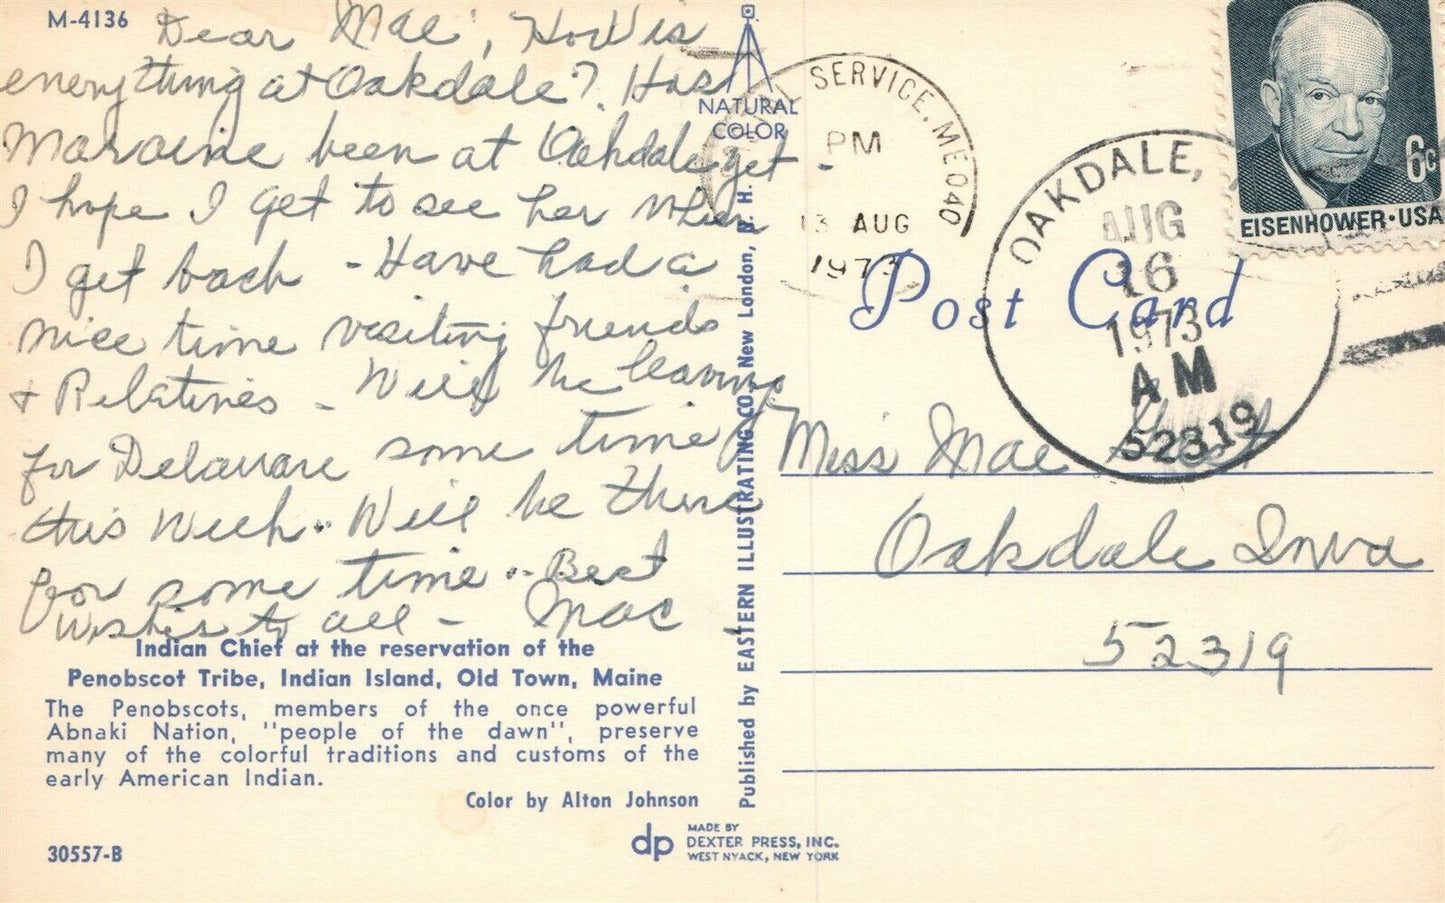 M-4136
Dear Mae, How is
everything at Oakdale? Has
been at Oakdale yet -
I hope I get to see her when
I get back - Have had a
nice time visiting friends
& Relatives - Will be leaving
for Delaware some time
this week. Will be there
for some time - Best
Wishes to all - Mac
Indian Chief at the reservation of the
Penobscot Tribe, Indian Island, Old Town, Maine
The Penobscots, members of the once powerful
Abnaki Nation, "people of the dawn", preserve
many of the colorful traditions and customs of the
early American Indian.
Color by Alton Johnson
30557-B
NATURAL
COLOR
Published by EASTERN ILLUSTRATING CO., New London, N. H.
dp
MADE BY
DEXTER PRESS, INC.
WEST NYACK, NEW YORK
SERVICE, ME 040
PM
13 AUG
1973
Post Card
OAKDALE,
AUG
16
1973
AM
52319
6c
EISENHOWER·USA
Miss Mae
Oakdale Iowa
52319